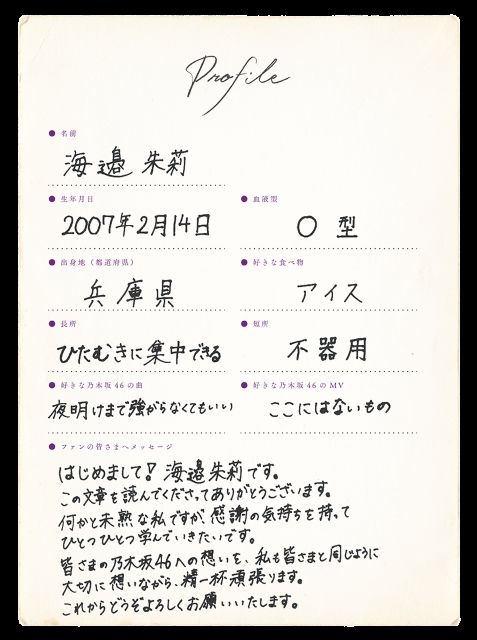 Profile
名前
海邉 朱莉
生年月日
血液型
2007年2月14日
O 型
出身地（都道府県）
好きな食べ物
兵庫県
アイス
長所
短所
ひたむきに集中できる
不器用
好きな乃木坂46の曲
好きな乃木坂46のMV
夜明けまで強がらなくてもいい
ここにはないもの
ファンの皆さまへメッセージ
はじめまして！海邉朱莉です。
この文章を読んでくださってありがとうございます。
何かと未熟な私ですが、感謝の気持ちを持って
ひとつひとつ学んでいきたいです。
皆さまの乃木坂46への想いを、私も皆さまと同じように
大切に想いながら、精一杯頑張ります。
これからどうぞよろしくお願いいたします。